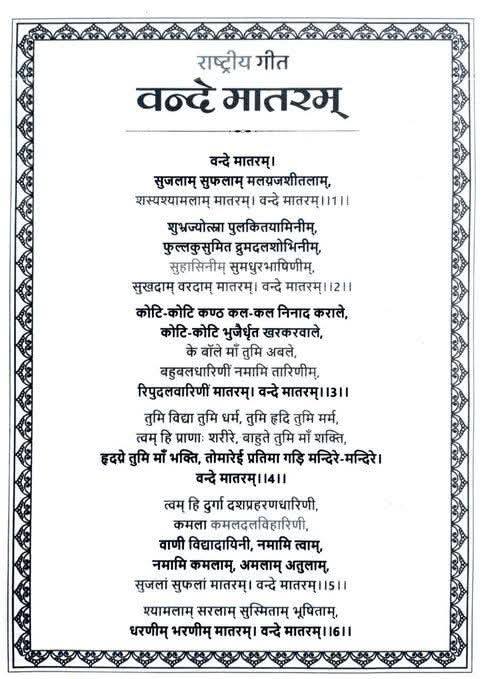 राष्ट्रीय गीत
वन्दे मातरम्
वन्दे मातरम्।
सुजलाम् सुफलाम् मलयजशीतलाम्,
शस्यश्यामलाम् मातरम्। वन्दे मातरम्।।1।।
शुभ्रज्योत्स्ना पुलकितयामिनीम्,
फुल्लकुसुमित द्रुमदलशोभिनीम्,
सुहासिनीम् सुमधुरभाषिणीम्,
सुखदाम् वरदाम् मातरम्। वन्दे मातरम्।।2।।
कोटि-कोटि कण्ठ कल-कल निनाद कराले,
कोटि-कोटि भुजैर्धृत खरकरवाले,
के बॉले माँ तुमि अबले,
बहुबलधारिणीं नमामि तारिणीम्,
रिपुदलवारिणीं मातरम्। वन्दे मातरम्।।3।।
तुमि विद्या तुमि धर्म, तुमि हृदि तुमि मर्म,
त्वम् हि प्राणाः शरीरे, बाहुते तुमि माँ शक्ति,
हृदय्रे तुमि माँ भक्ति, तोमारेई प्रतिमा गड़ि मन्दिरे-मन्दिरे।
वन्दे मातरम्।।4।।
त्वम् हि दुर्गा दशप्रहरणधारिणी,
कमला कमलदलविहारिणी,
वाणी विद्यादायिनी, नमामि त्वाम्,
नमामि कमलाम्, अमलाम् अतुलाम्,
सुजलां सुफलां मातरम्। वन्दे मातरम्।।5।।
श्यामलाम् सरलाम् सुस्मिताम् भूषिताम्,
धरणीम् भरणीम् मातरम्। वन्दे मातरम्।।6।।